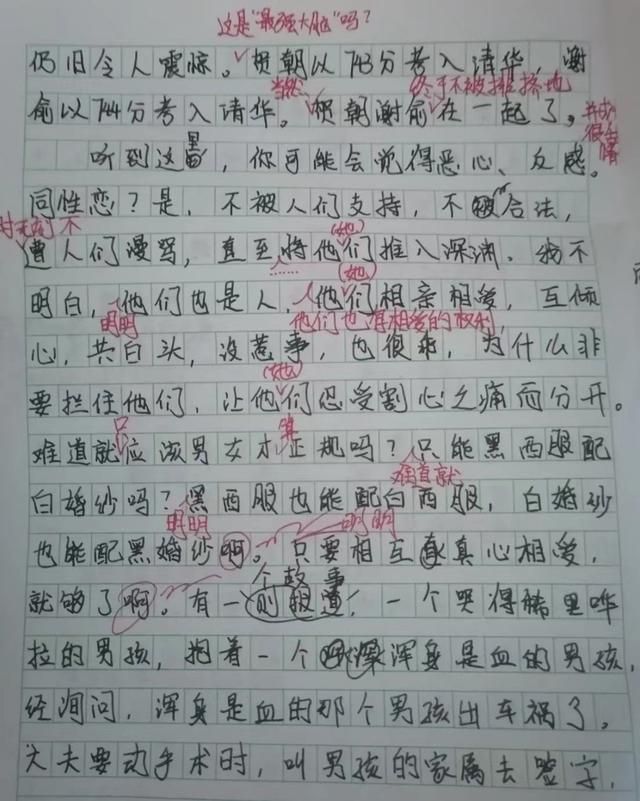 这是“最强大脑”吗？
仍旧令人震惊。贺朝以743分考入清华，谢
当然 终于不被排挤地
俞以744分考入清华。贺朝谢俞在一起了。
听到这里，你可能会觉得恶心、反感。
同性恋？是，不被人们支持，不被合法，
(她)
遭人们漫骂，直至将他们推入深渊。我不
(她)
明白，他们也是人，他们相亲相爱，互倾
明明 他们也有相爱的权利，
心，共白头，没惹事，也很乖，为什么非
(她)
要拦住他们，让他们忍受割心之痛而分开。
只 算
难道就应该男女才正规吗？只能黑西服配
难道就
白婚纱吗？黑西服也能配白西服，白婚纱
明明 明明
也能配黑婚纱啊。只要相互真心相爱，
个故事
就够了啊。有一则报道：一个哭得稀里哗
拉的男孩，抱着一个浑身是血的男孩，
经询问，浑身是血的那个男孩出车祸了。
大夫要动手术时，叫男孩的家属去签字，